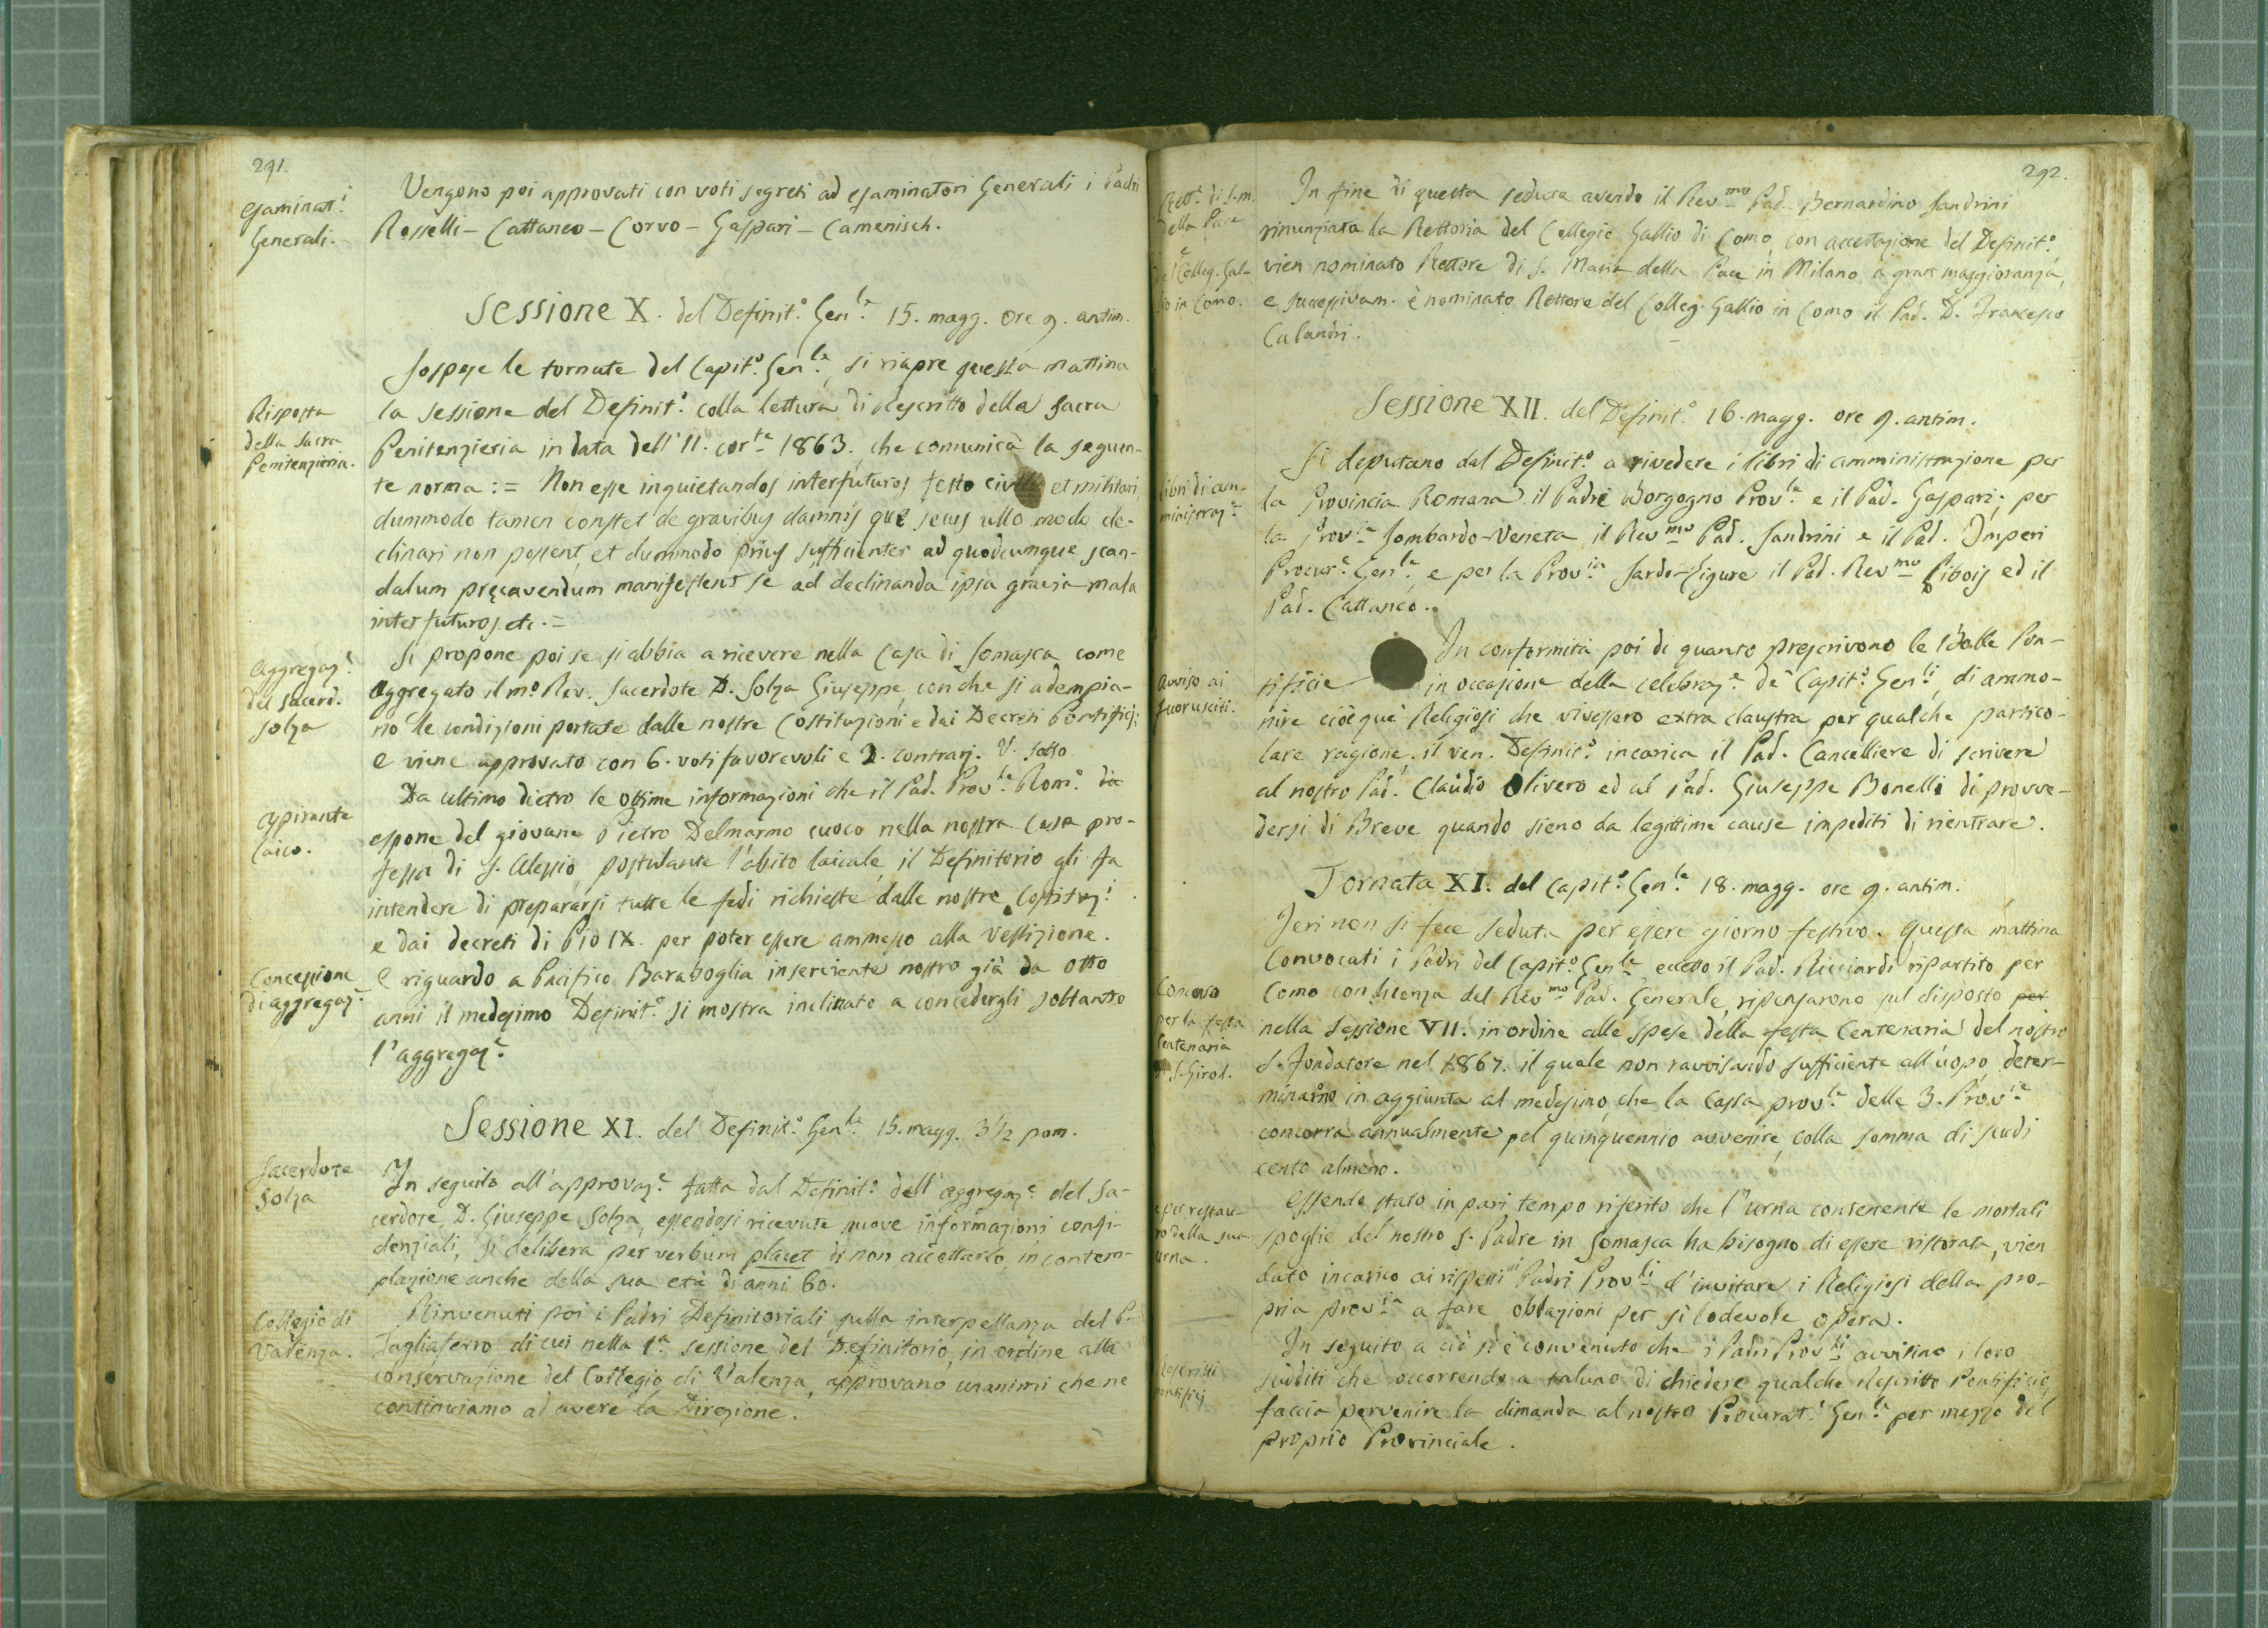 291.
Esaminat.i
Generali.
Vengono poi approvati con voti segreti ad esaminatori Generali i Padri
Rosselli - Cattaneo - Corvo - Gaspari - Camenisch.
Sessione X. del Definit.o Gen.le 15. magg. ore 9. antim.
Sospese le tornate del Capit.o Gen.le, si riapre questa mattina
Risposta
della Sacra
Penitenzieria.
la sessione del Definit.o colla lettura di Rescritto della Sacra
Penitenzieria in data dell'11. cor.te 1863. che comunica la seguen-
te norma := Non esse inquietandos interfuturos festo civili et militari,
dummodo tamen constet de gravibus damnis quę secus ullo modo de-
clinari non possent, et dummodo prius sufficienter ad quodcumque scan-
dalum pręcavendum manifestent se ad declinanda ipsa gravia mala
interfuturos. etc. =
Aggregaz.e
del Sacerd.
Solza
Si propone poi se si abbia a ricevere nella Casa di Somasca come
aggregato il m.o Rev. Sacerdote D. Solza Giuseppe, con che si adempia-
no le condizioni portate dalle nostre Costituzioni e dai Decreti Pontificj;
e viene approvato con 6. voti favorevoli e 2. contrarj. V. sotto
Aspirante
laico.
Da ultimo dietro le ottime informazioni che il Pad. Prov.le Rom.o dà
espone del giovane Pietro Delmarmo cuoco nella nostra Casa pro-
fessa di S. Alessio, postulante l'abito laicale, il Definitorio gli fa
intendere di prepararsi tutte le fedi richieste dalle nostre Costituz.i
e dai decreti di Pio IX. per poter essere ammesso alla Vestizione.
Concessione
di aggregaz.e
E riguardo a Pacifico Baraboglia inserviente nostro già da otto
anni il medesimo Definit.o si mostra inclinato a concedergli soltanto
l'aggregaz.e
Sessione XI. del Definit.o Gen.le 15. magg. 3 1/2 pom.
Sacerdote
Solza
In seguito all'approvaz.e fatta dal Definit.o dell'aggregaz.e del Sa-
cerdote D. Giuseppe Solza, essendosi ricevute nuove informazioni confi-
denziali, si delibera per verbum placet di non accettarlo, in contem-
plazione anche della sua età di anni 60.
Collegio di
Valenza.
Rinvenuti poi i Padri Definitoriali sulla interpellanza del P.
Tagliaferro di cui nella 1.a sessione del Definitorio, in ordine alla
conservazione del Collegio di Valenza, approvano unanimi che ne
continuiamo ad avere la Direzione.
292.
Rett.e di S. M.
della Pace
e
del Colleg. Gal-
lio in Como.
In fine di questa seduta avendo il Rev.mo Pad. Bernardino Sandrini
rinunziata la Rettoria del Collegio Gallio di Como, con accettazione del Definit.o
vien nominato Rettore di S. Maria della Pace in Milano a gran maggioranza,
e successivam. è nominato Rettore del Colleg. Gallio in Como il Pad. D. Francesco
Calandri.
Sessione XII. del Definit.o 16. magg. ore 9. antim.
Libri di am-
ministraz.e
Si deputano dal Definit.o a rivedere i libri di amministrazione per
la Provincia Romana il Padre Borgogno Prov.le e il Pad. Gaspari; per
la Prov.ia Lombardo-Veneta il Rev.mo Pad. Sandrini e il Pad. Imperi
Procur.e Gen.le, e per la Prov.ia Sardo-Ligure il Pad. Rev.mo Libois ed il
Pad. Cattaneo.
Avviso ai
fuorusciti.
In conformità poi di quanto prescrivono le Bolle Pon-
tificie in occasione della celebraz.e de' Capit.i Gen.li, di ammo-
nire cioè que' Religiosi che vivessero extra claustra per qualche partico-
lare ragione, il ven. Definit.o incarica il Pad. Cancelliere di scrivere
al nostro Pad. Claudio Olivero ed al Pad. Giuseppe Bonelli di provve-
dersi di Breve quando sieno da legittime cause impediti di rientrare.
Tornata XI. del Capit.o Gen.le 18. magg. ore 9. antim.
Jeri non si fece seduta per essere giorno festivo. Questa mattina
Convocati i Padri del Capit.o Gen.le eccetto il Pad. Ricciardi ripartito per
Concorso
per la festa
Centenaria
di S. Girol.
Como con licenza del Rev.mo Pad. Generale, ripensarono sul disposto per
nella Sessione VII. in ordine alle spese della festa Centenaria del nostro
S. Fondatore nel 1867. il quale non ravvisando sufficiente all'uopo, deter-
minarono in aggiunta al medesimo che la Cassa prov.le delle 3. Prov.ie
concorra annualmente pel quinquennio avvenire, colla somma di scudi
cento almeno.
e per restau-
ro della sua
urna.
Essendo stato in pari tempo riferito che l'urna contenente le mortali
spoglie del nostro S. Padre in Somasca ha bisogno di essere ristorata, vien
dato incarico ai rispetti.vi Padri Prov.li d'invitare i Religiosi della pro-
pria prov.ia a fare oblazioni per sì lodevole opera.
Rescritti
pontificj
In seguito a ciò si è convenuto che i Padri Prov.li avvisino i loro
sudditi che occorrendo a taluno di chiedere qualche Rescritto Pontificio,
faccia pervenire la dimanda al nostro Procurat.e Gen.le per mezzo del
proprio Provinciale.